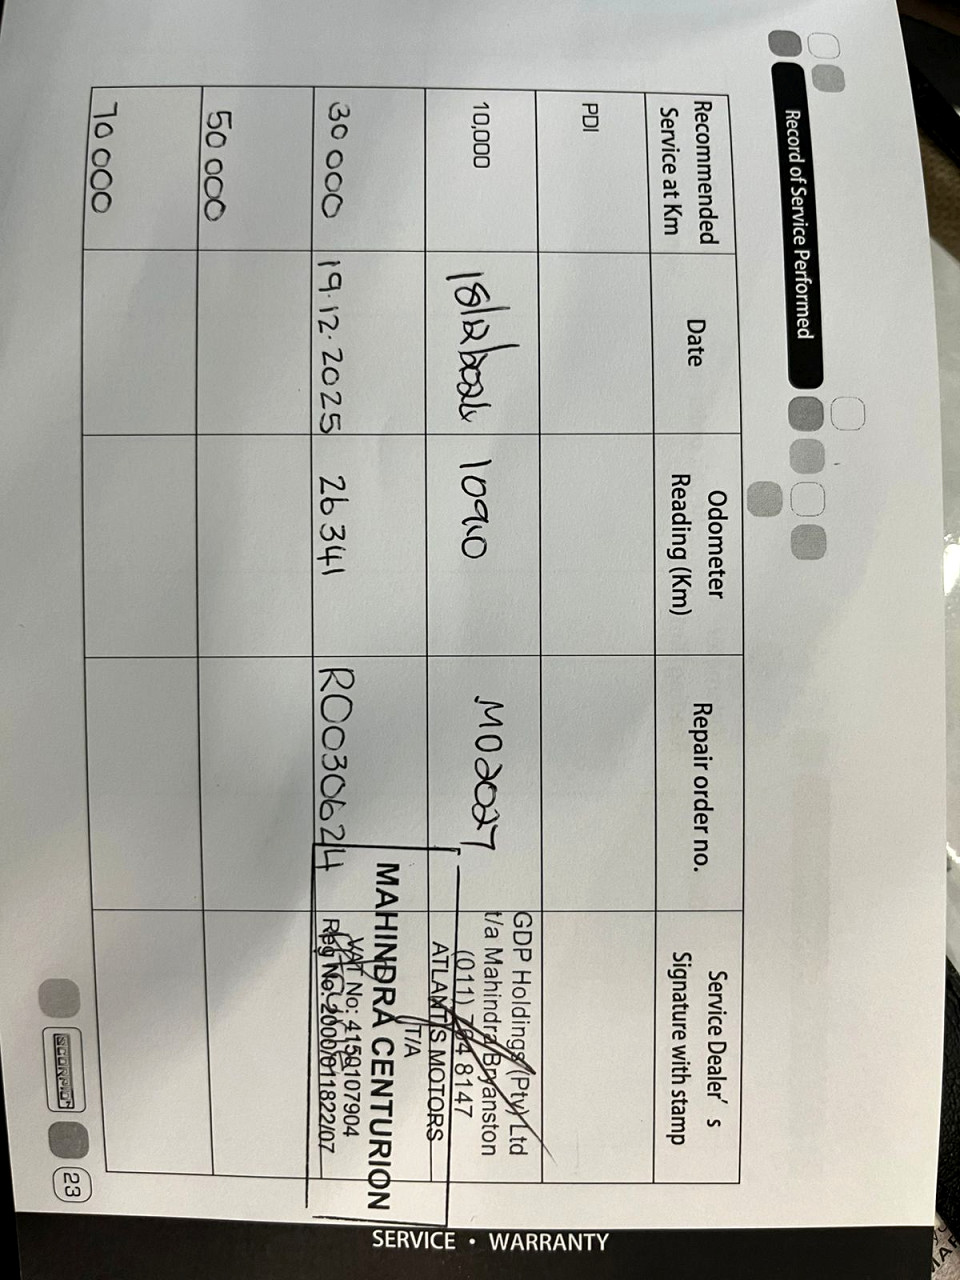 Record of Service Performed
Recommended Service at Km
Date
Odometer Reading (Km)
Repair order no.
Service Dealer's Signature with stamp
PDI
10,000
18/12/2024
10910
M02027
GDP Holdings (Pty) Ltd
t/a Mahindra Bryanston
(011) 794 8147
30 000
19.12.2025
26341
R0030624
ATLANTIS MOTORS
T/A
MAHINDRA CENTURION
VAT No: 4150107904
Reg No. 2000/011822/07
50 000
70 000
SCORPIO
23
SERVICE • WARRANTY